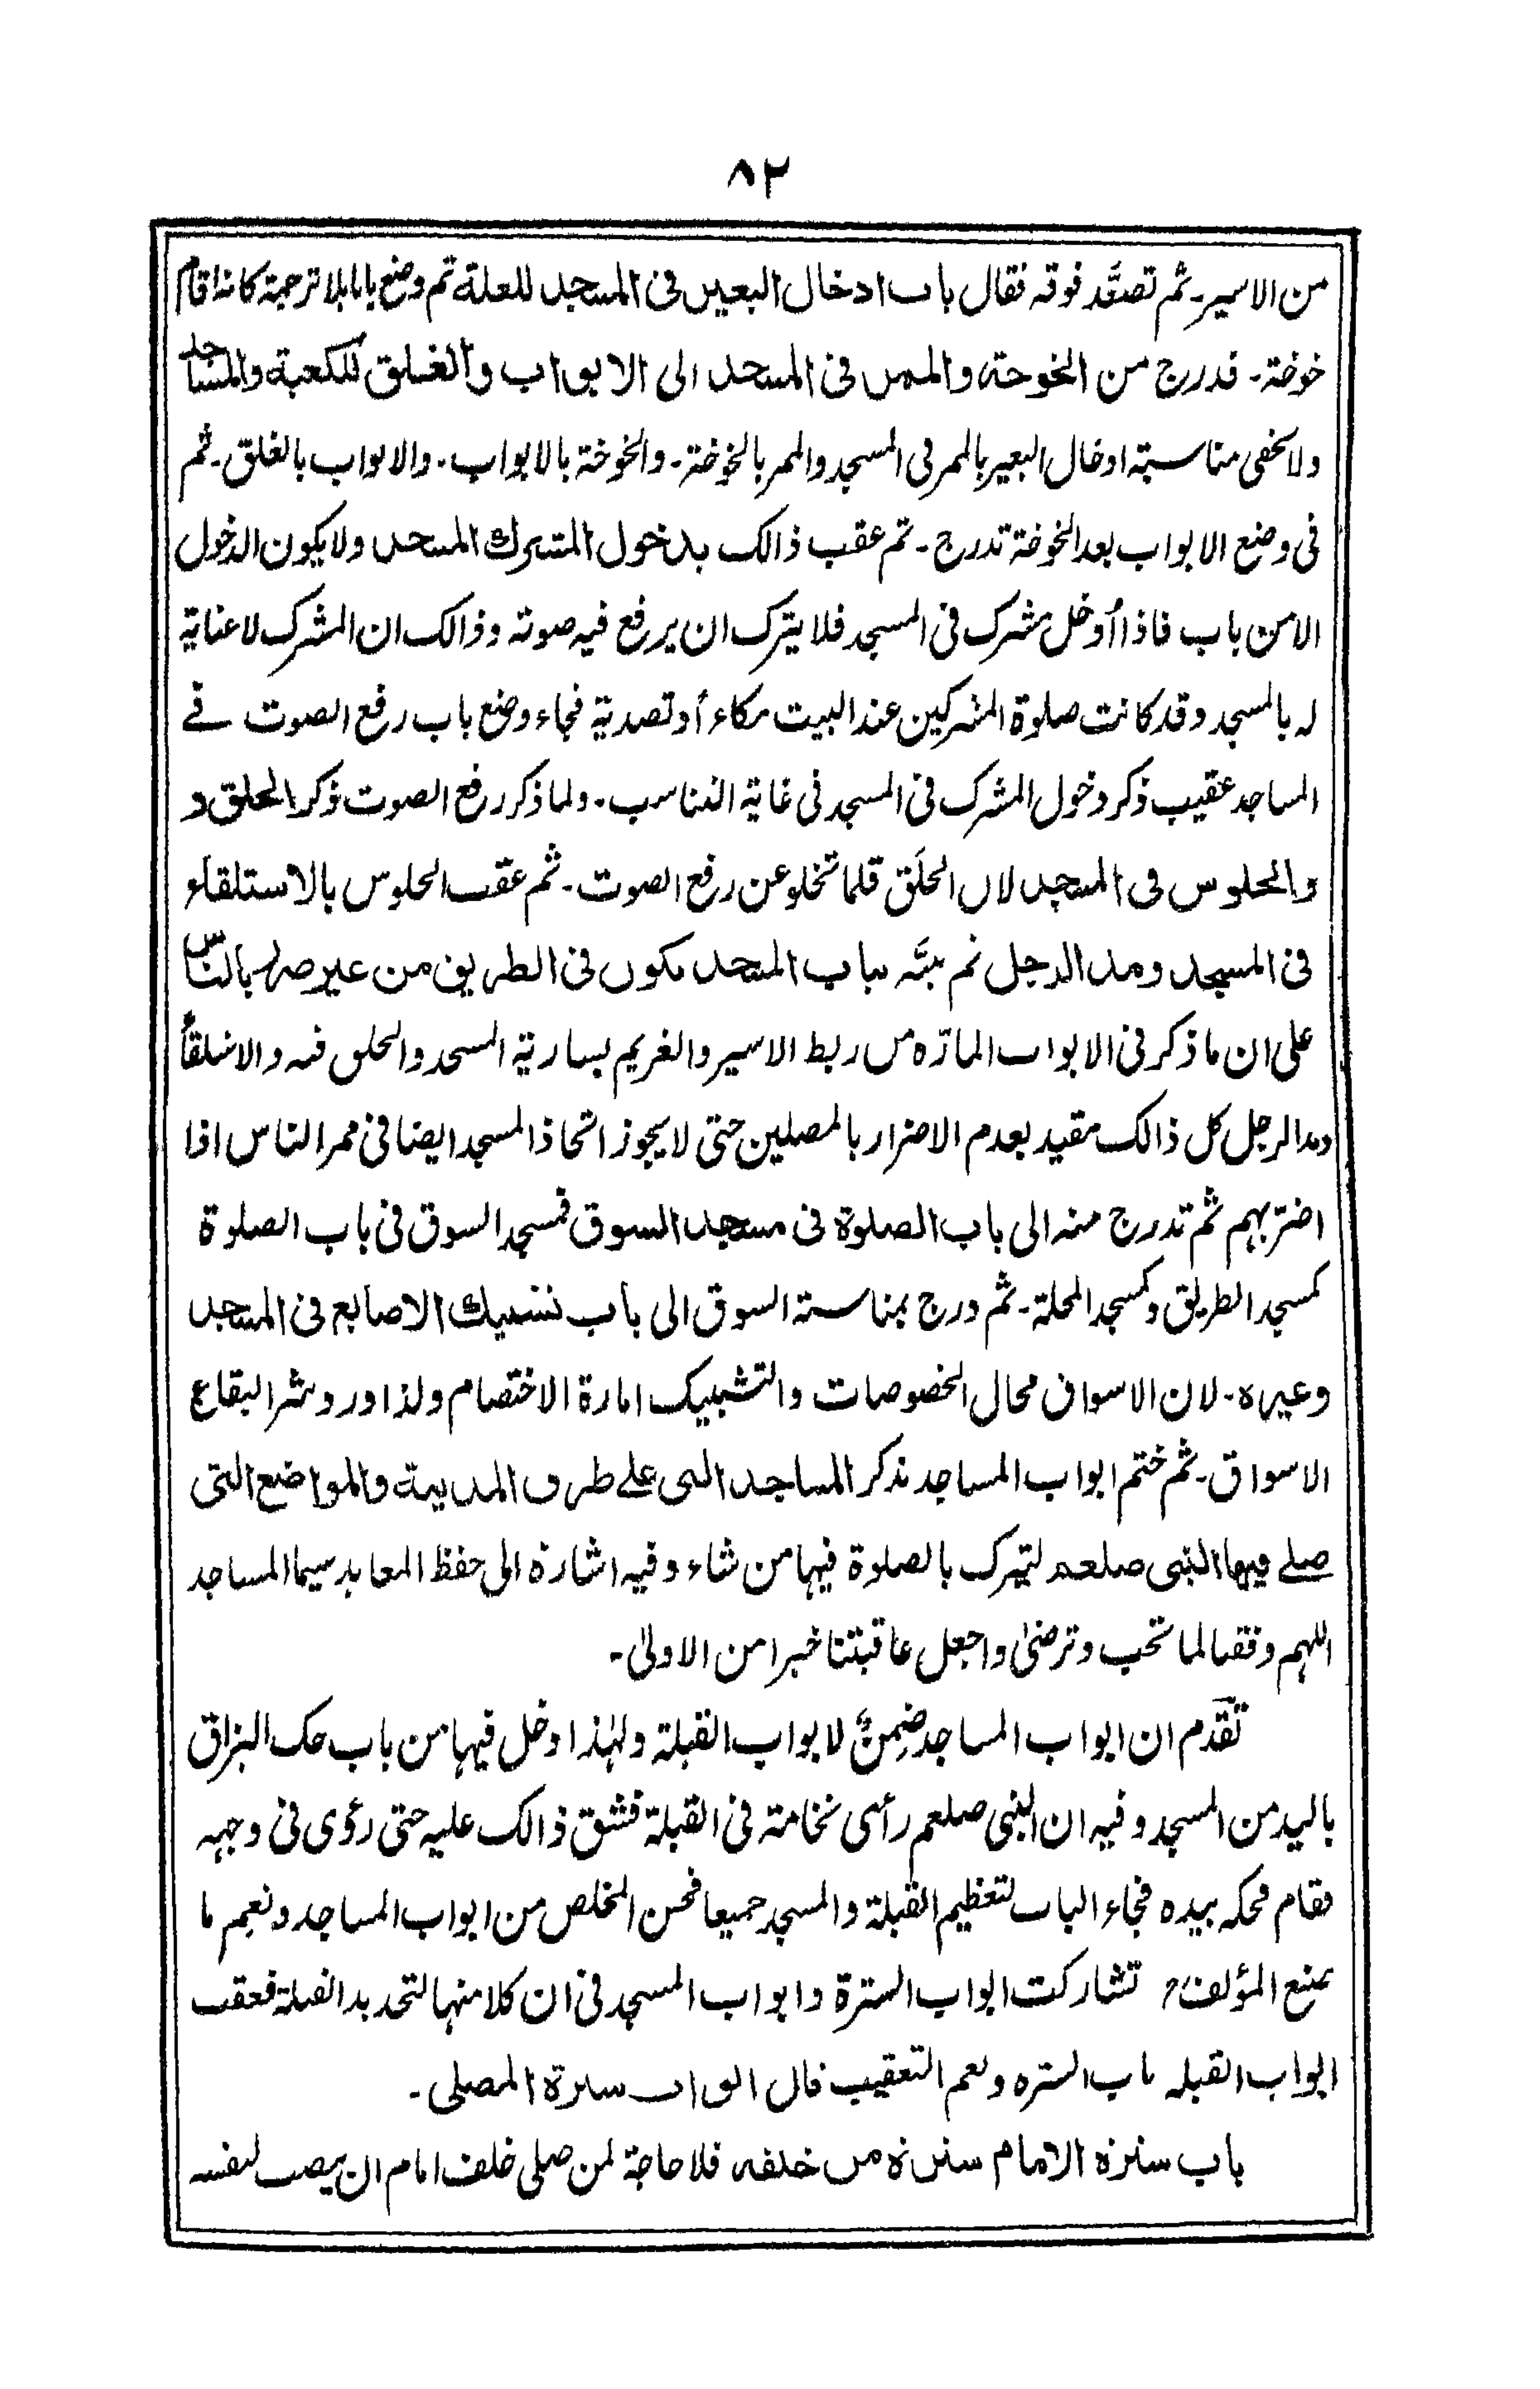 ٨٢
من الاسير۔ ثم تصعَّد فوقه فقال باب ادخال البعير فى المسجد للعلة ثم وضع بابا بلا ترجمة كانه اقام
خوخة۔ فدرج من الخوخة والممر فى المسجد الى الابواب والغلق للكعبة والمساجد
ولا يخفى مناسبة ادخال البعير بالممر فى المسجد والممر بالخوخة۔ والخوخة بالابواب۔ والابواب بالغلق۔ ثم
فى وضع الابواب بعد الخوخة تدرج۔ ثم عقب ذالك بدخول المشرك المسجد ولا يكون الدخول
الا من باب فاذا أُدخل مشرك فى المسجد فلا يترك ان يرفع فيه صوته وذالك ان المشرك لا عناية
له بالمسجد وقد كانت صلوة المشركين عند البيت مكاء أو تصدية فجاء وضع باب رفع الصوت فے
المساجد عقيب ذكر دخول المشرك فى المسجد فى غاية التناسب۔ ولما ذكر رفع الصوت ذكر الحلق و
والجلوس فى المسجد لان الحلَق قلما تخلو عن رفع الصوت۔ ثم عقب الجلوس بالاستلقاء
فى المسجد ومد الرجل ثم نبَّه بباب المسجد يكون فى الطريق من غير ضرر بالناس
على ان ما ذكر فى الابواب المارّة من ربط الاسير والغريم بسارية المسجد والحلق فيه والاستلقاً
ومد الرجل كل ذالك مقيد بعدم الاضرار بالمصلين حتى لا يجوز اتخاذ المسجد ايضا فى ممر الناس اذا
اضرّ بهم ثم تدرج منه الى باب الصلوة فى مسجد السوق فمسجد السوق فى باب الصلوة
كمسجد الطريق وكمسجد المحلة۔ ثم درج بمناسبة السوق الى باب تشبيك الاصابع فى المسجد
وغيره۔ لان الاسواق محال الخصوصات والتشبيك امارة الاختصام ولذا ورد شر البقاع
الاسواق۔ ثم ختم ابواب المساجد بذكر المساجد التى علے طرق المدينة والمواضع التى
صلے فيها النبى صلعم لتبرك بالصلوة فيها من شاء وفيه اشارة الى حفظ المعابد سيما المساجد
اللهم وفقنا لما تحب وترضىٰ واجعل عاقبتنا خيرا من الاولىٰ۔
تقدّم ان ابواب المساجد ضِمنٌ لابواب القبلة ولهٰذا دخل فيها من باب حك البزاق
باليد من المسجد وفيه ان النبى صلعم رأى نخامة فى القبلة فشق ذالك عليه حتى رؤى فى وجهه
فقام فحكه بيده فجاء الباب لتعظيم القبلة والمسجد جميعا فحسن المخلص من ابواب المساجد ونعم ما
صنع المؤلفؒ تشاركت ابواب السترة وابواب المسجد فى ان كلا منها لتحديد القبلة فعقب
ابواب القبلة باب السترة ونعم التعقيب قال ابواب سترة المصلى۔
باب سترة الامام سترة من خلفه فلا حاجة لمن صلى خلف امام ان ينصب لنفسه